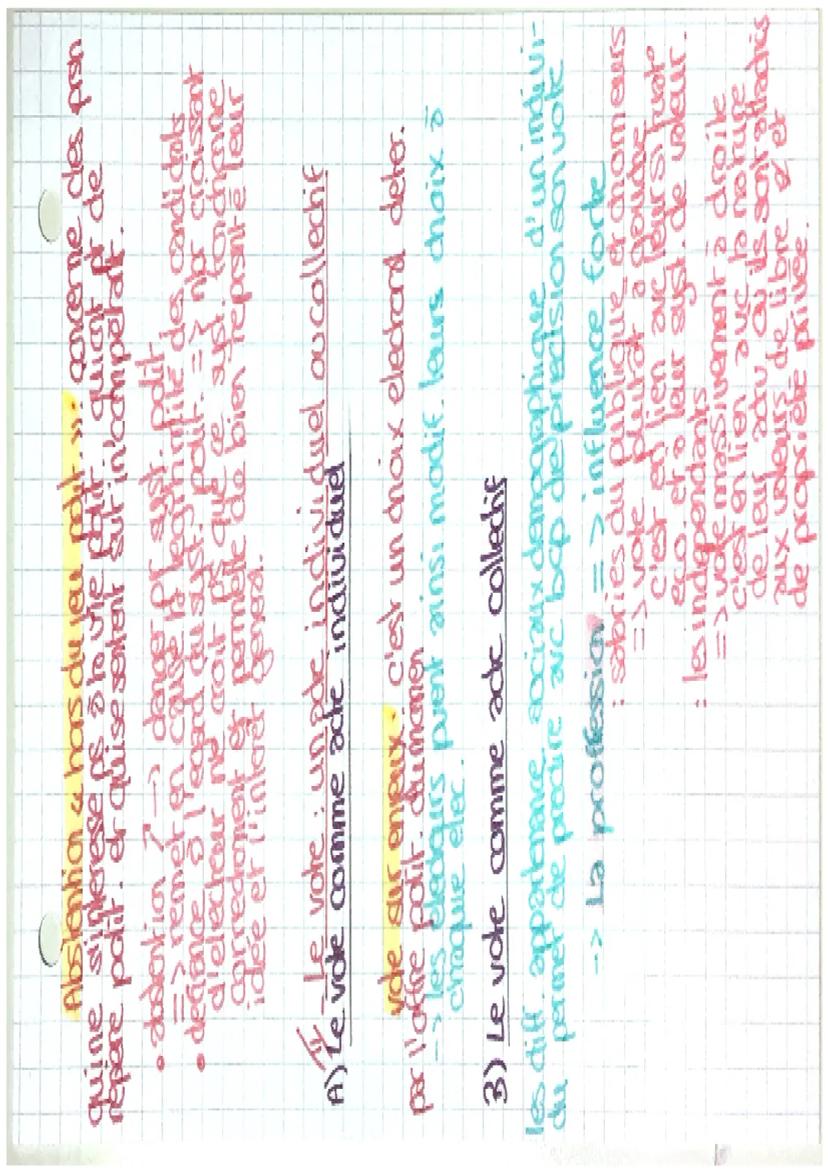 Abstention « hors du jeu polit. »: concerne des prsn
qui ne s'intéresse ps à la vie polit. qui ont pr de
repère polit. et qui se sentent sur incompétat.
• abstention ↗ → danger pr syst. polit.
=> remet en cause la légitimité des candidats
• défiance à l'égard du syst. polit. => nbr croissant
d'électeur ne croit ps que ce syst. fonctionne
correctement et permette de bien représnté leur
idée et l'intérêt général.
II - Le vote : un acte individuel ou collectif
A) Le vote comme acte individuel
Vote sur enjeux: c'est un choix électoral déter.
par l'offre polit. du momen
-> les électeurs pvent ainsi modif. leurs choix à
chaque élec.
B) Le vote comme acte collectif
les diff. appartenance sociaux démographique d'un indivi-
du permet de prédire avc bcp de précision son vote
-> La proffession => influence forte
: salariés du publique et chomeurs
=> vote plutôt à gauche
c'est en lien avc leur situat°
éco. et à leur syst. de valeur.
: les indépendants
=> vote massivement à droite
c'est en lien avc la nature
de leur activ et ils sont attachés
aux valeurs de libre et
de propriété privée.